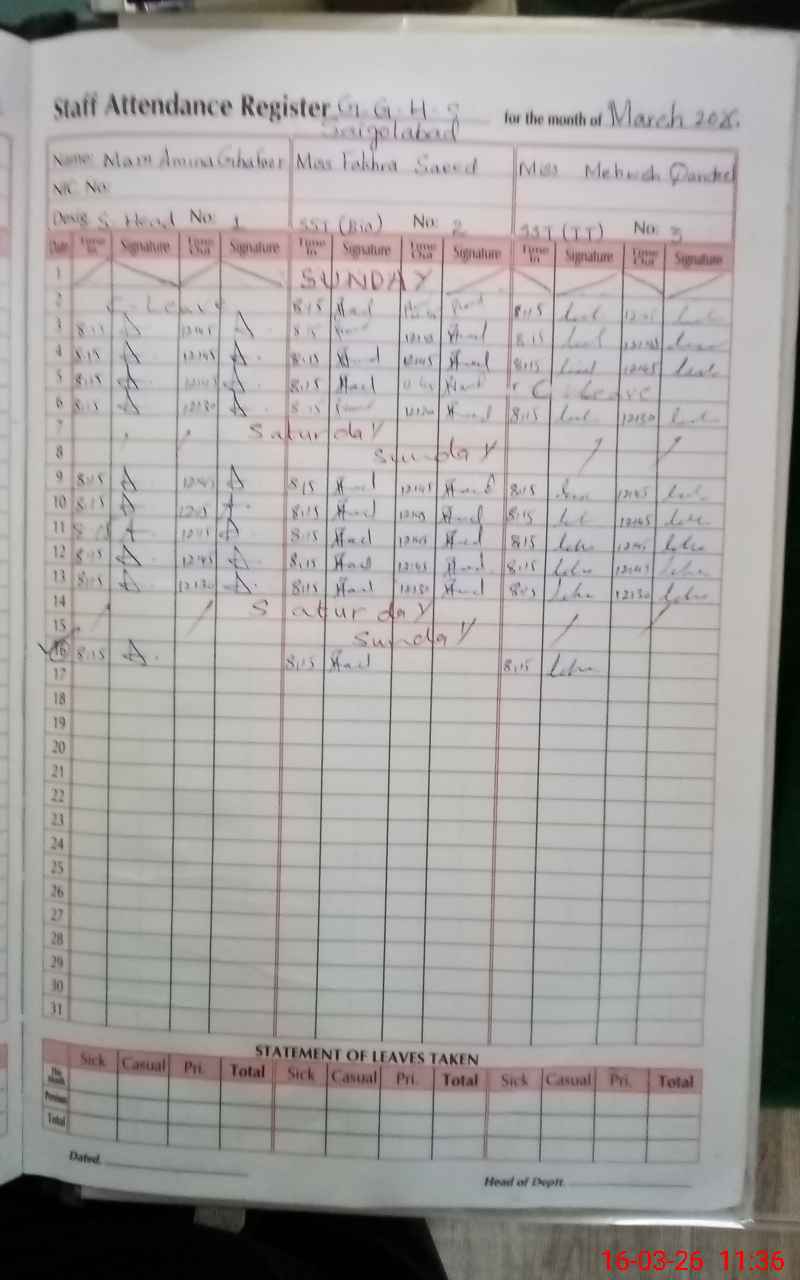 Staff Attendance Register G. G. H. S for the month of March 2026.
Saigolabad
Name: Mam Amina Ghafoor Miss Fakhra Saeed Miss Mehwish
NIC No:
Desig S. Head No: 1 SST (Bio) No: 2 SST (IT) No: 3
Date Time In Signature Time Out Signature Time In Signature Time Out Signature Time In Signature Time Out Signature
1 SUNDAY
2 C. Leave 8:15 8:15
3 8:15 12:45 8:15 12:45 8:15 12:45
4 8:15 12:45 8:15 12:45 8:15 12:45
5 8:15 12:45 8:15 C. Leave
6 8:15 12:30 8:15 12:30 8:15 12:30
7 Saturday
8 Sunday
9 8:15 12:45 8:15 12:45 8:15 12:45
10 8:15 12:45 8:15 12:45 8:15 12:45
11 12:45 8:15 12:45 8:15 12:45
12 8:15 12:45 8:15 12:45 8:15 12:45
13 8:15 12:30 8:15 12:30 8:15 12:30
14 Saturday
15 Sunday
16 8:15 8:15 8:15
17
18
19
20
21
22
23
24
25
26
27
28
29
30
31
STATEMENT OF LEAVES TAKEN
Sick Casual Pri. Total Sick Casual Pri. Total Sick Casual Pri. Total
This Month
Previous
Total
Dated
Head of Deptt.
16-03-26 11:36